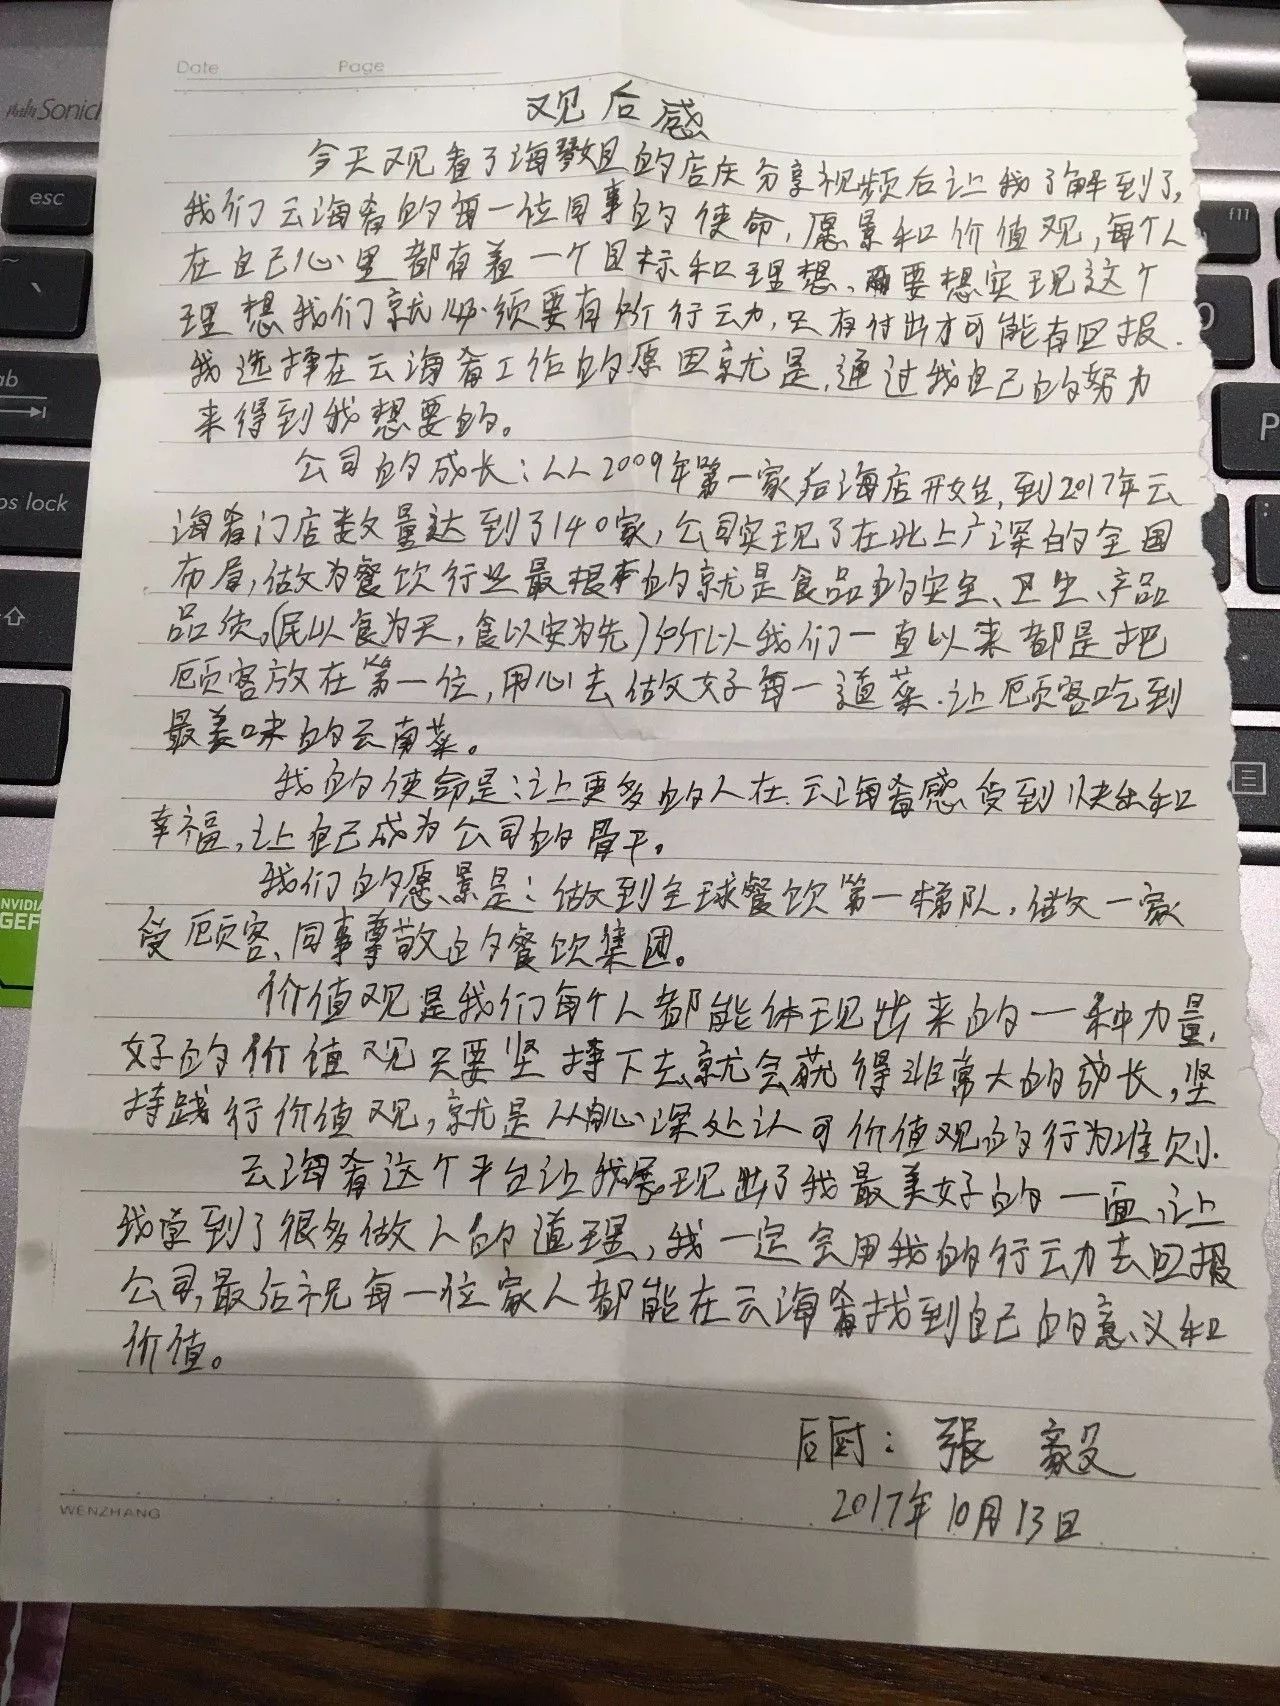 Date Page
观后感
今天观看了海敏姐的店庆分享视频后让我了解到了,
我们云海肴的每一位同事的使命,愿景和价值观,每个人
在自己心里都有着一个目标和理想、要想实现这个
理想我们就必须要有所行动,只有付出才可能有回报.
我选择在云海肴工作的原因就是,通过我自己的努力
来得到我想要的。
公司的成长:从2009年第一家后海店开始,到2017年云
海肴门店数量达到了140家,公司实现了在北上广深的全国
布局,做为餐饮行业最根本的就是食品的安全、卫生、产品
品质。(民以食为天,食以安为先)所以我们一直以来都是把
顾客放在第一位,用心去做好每一道菜.让顾客吃到
最美味的云南菜。
我的使命是:让更多的人在云海肴感受到快乐和
幸福,让自己成为公司的骨干。
我们的愿景是:做到全球餐饮第一梯队,做一家
受顾客、同事尊敬的餐饮集团。
价值观是我们每个人都能体现出来的一种力量,
好的价值观只要坚持下去就会获得非常大的成长,坚
持践行价值观,就是从内心深处认可价值观的行为准则.
云海肴这个平台让我展现出了我最美好的一面,让
我学到了很多做人的道理,我一定会用我的行动去回报
公司,最后祝每一位家人都能在云海肴找到自己的意义和
价值。
后厨:張毅
2017年10月13日
WENZHANG
esc
f11
ab
ps lock
P
NVIDIA
GEF